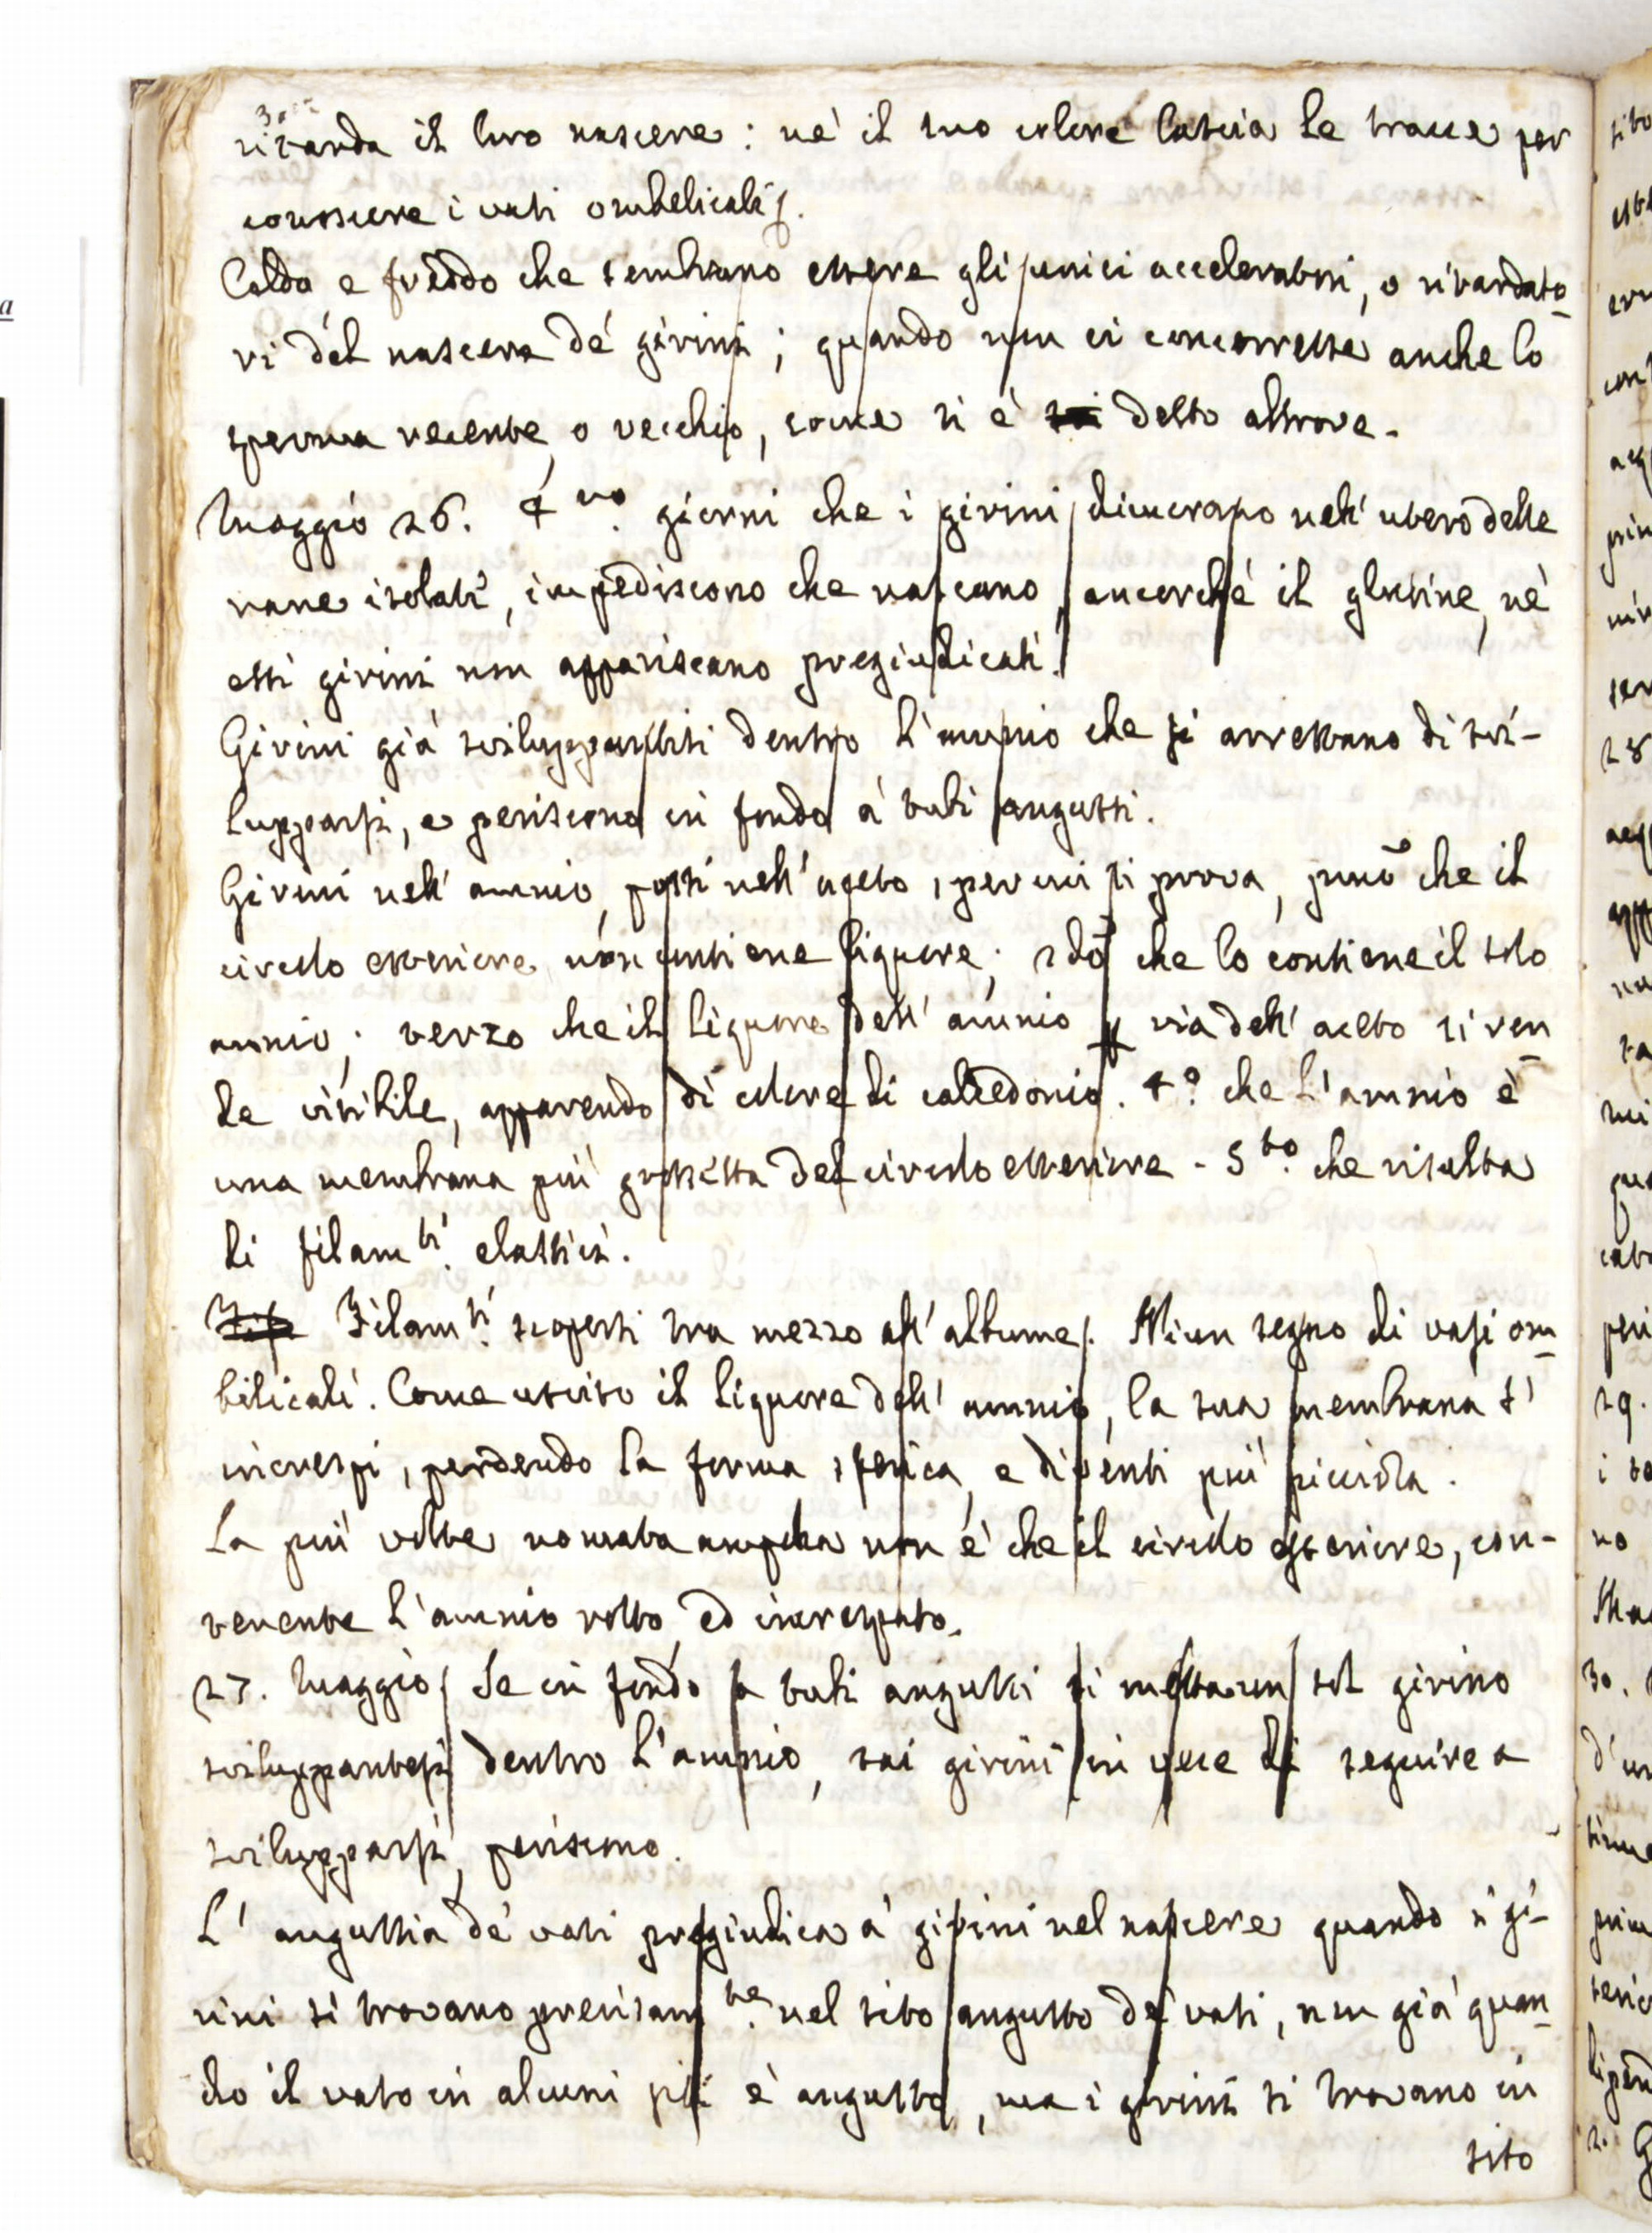 ritarda il loro nascere: nè il suo colore lascia le tracce per
conoscere i vasi ombelicali.
Caldo e freddo che sembrano essere gli unici acceleratori, o ritardato-
ri del nascere de' girini; quando non ci concorresse anche lo
sperma recente o vecchio, come si è detto altrove.
Maggio 26. 4 giorni che i girini dimorano nell' utero delle
rane isolati, impediscono che nascano, ancorchè il glutine, nè
essi girini non appariscano pregiudicati.
Girini già sviluppantisi dentro l'amnio che si arrestano di svi-
lupparsi, e periscono in fondo a' tubi angusti.
Girini nell' amnio, posti nell' aceto, per cui si prova, pmo che il
circolo esteriore non contiene liquore; 2do che lo contiene il solo
amnio; terzo che il liquore dell' amnio in via dell' aceto si ren-
de visibile, apparendo di colore di calcedonio. 4o. che l'amnio è
una membrana più grossetta del circolo esteriore - 5to. che risulta
di filamti. elastici.
Filamti. scoperti tra mezzo all' albume. Niun segno di vasi om-
bilicali. Come uscito il liquore dell' amnio, la sua membrana s'
increspi, perdendo la forma sferica, e diventi più picciola.
La più volte nomata non è che il circolo esteriore, con-
tenente l'amnio rotto ed increspato.
27. Maggio Se in fondo a tubi angusti si metta un sol girino
sviluppantesi dentro l'amnio, tai girini in vece di seguire a
svilupparsi, periscono.
L' angustia de' vasi pregiudica a' girini nel nascere quando i gi-
rini si trovano precisamte. nel sito angusto de' vasi, non già quan-
do il vaso in alcuni siti è angusto, ma i girini si trovano in
sito